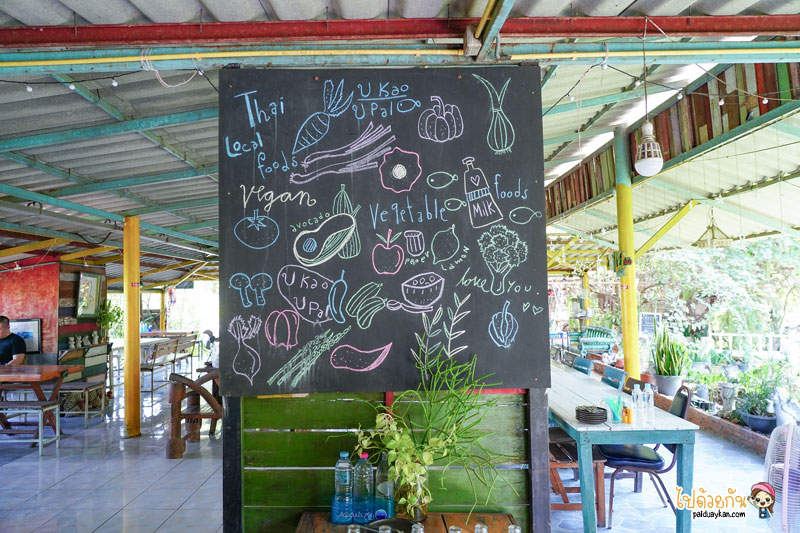 Thai
Local
foods
U Kao
U Pal
Vegan
avocado
Vegetable
foods
Milk
Paper
Lamon
love
you
U Kao
U Pal
ไปด้วยกัน
paiduaykan.com